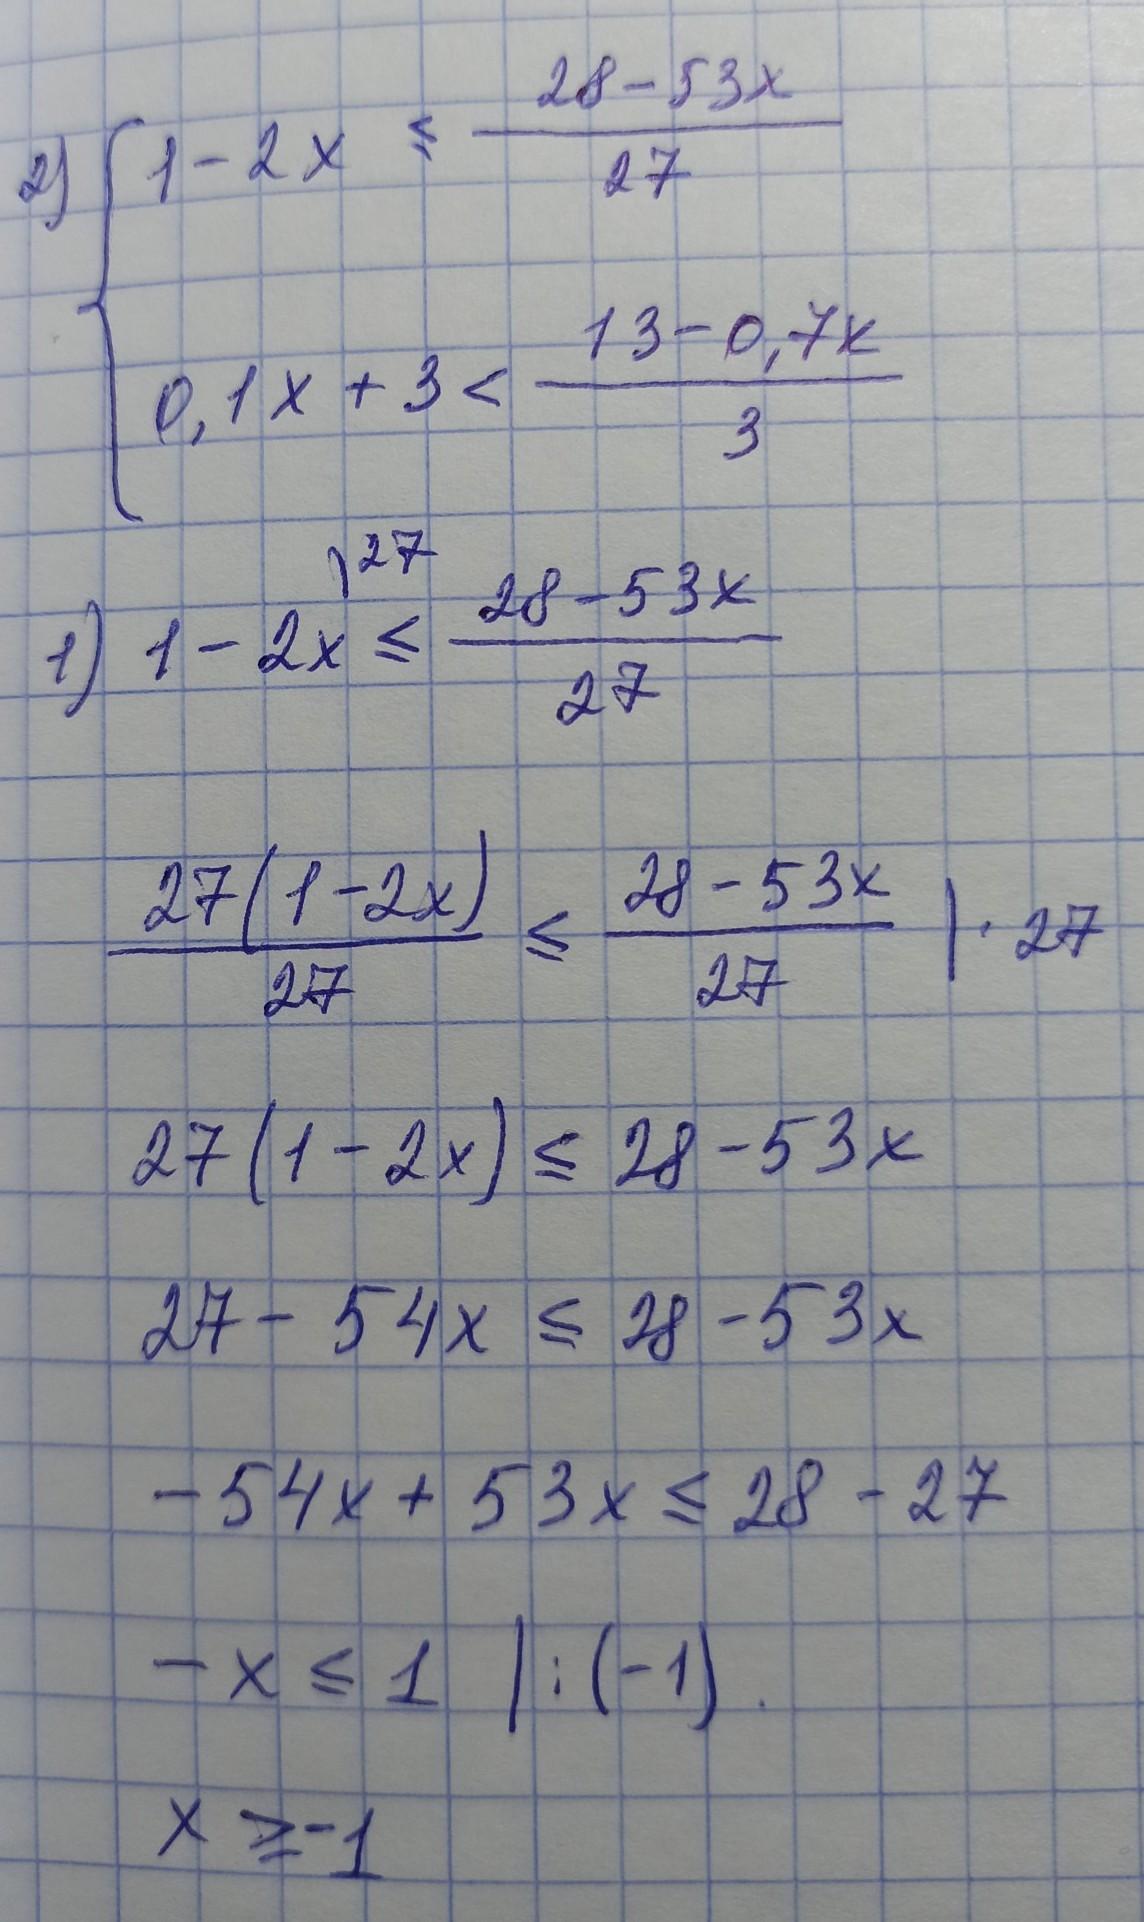 2) { 1 - 2x ≤ (28 - 53x)/27
0,1x + 3 < (13 - 0,7x)/3
1) 1 - 2x \27 ≤ (28 - 53x)/27
27(1 - 2x)/27 ≤ (28 - 53x)/27 | · 27
27(1 - 2x) ≤ 28 - 53x
27 - 54x ≤ 28 - 53x
- 54x + 53x ≤ 28 - 27
- x ≤ 1 | : (-1).
x ≥ -1